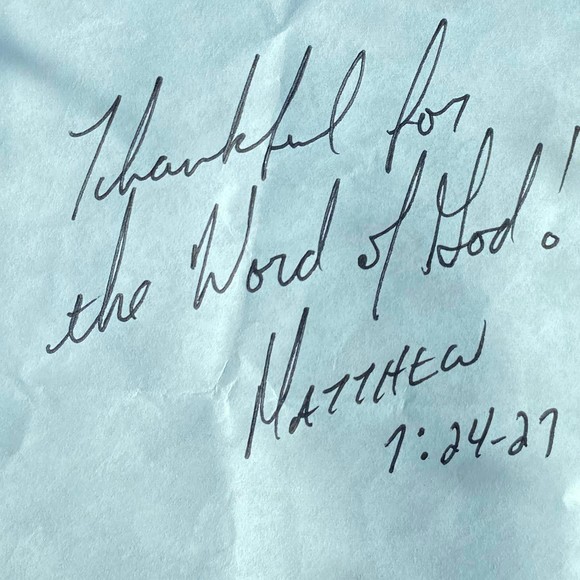 Thankful for
the Word of God!
MATTHEW
7:24-27